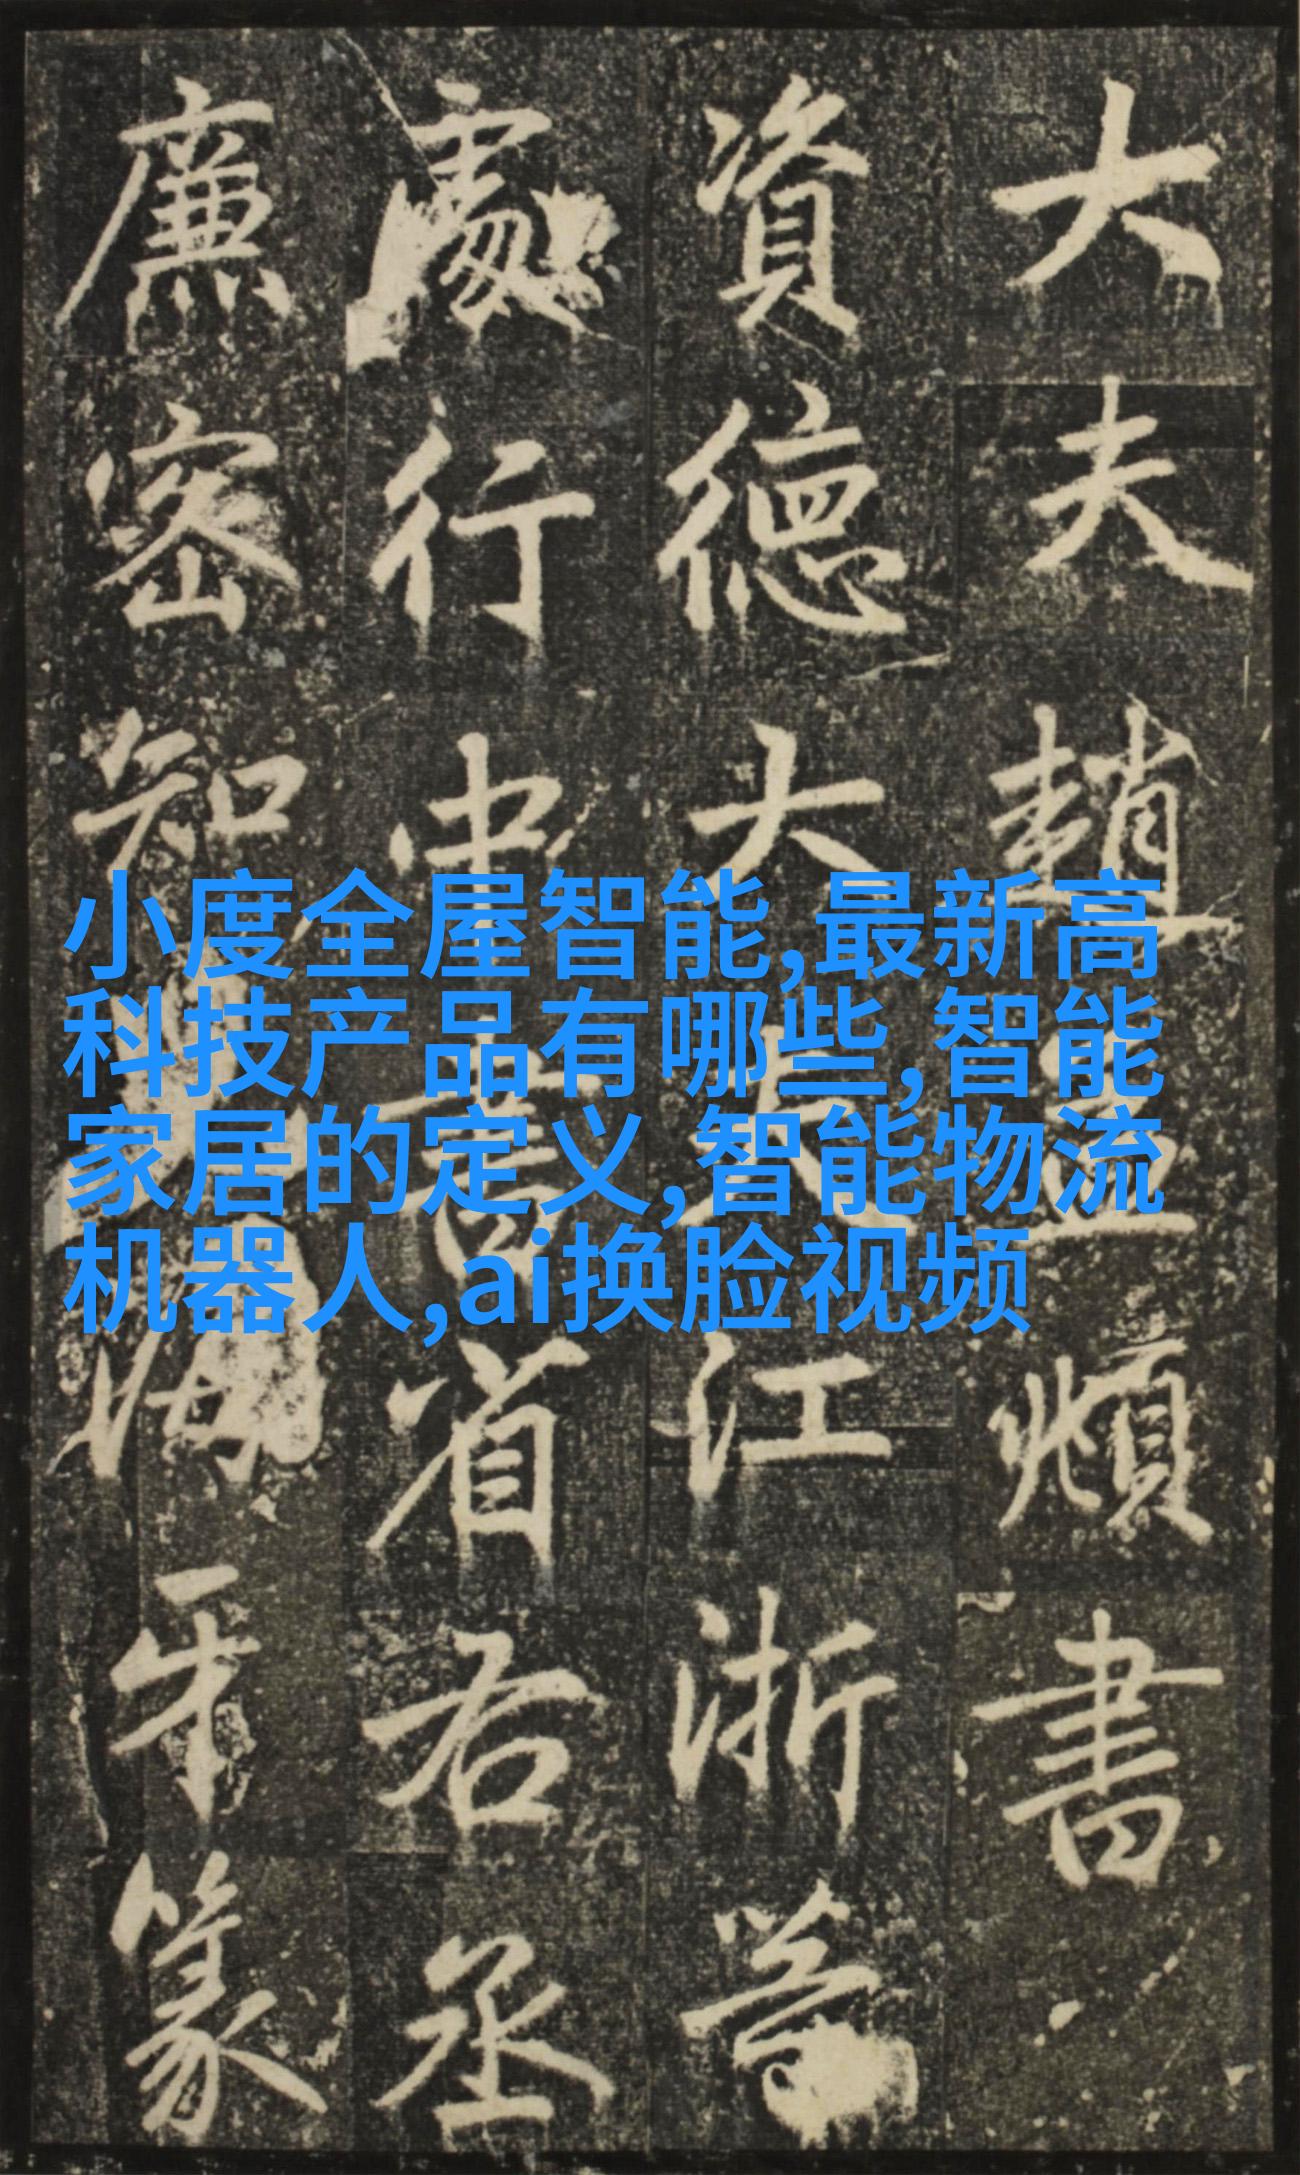 大夫趙孟頫書
資德大夫江浙等
處行中書省右丞
廉密知海牙篆
小度全屋智能,最新高
科技产品有哪些,智能
家居的定义,智能物流
机器人,ai换脸视频